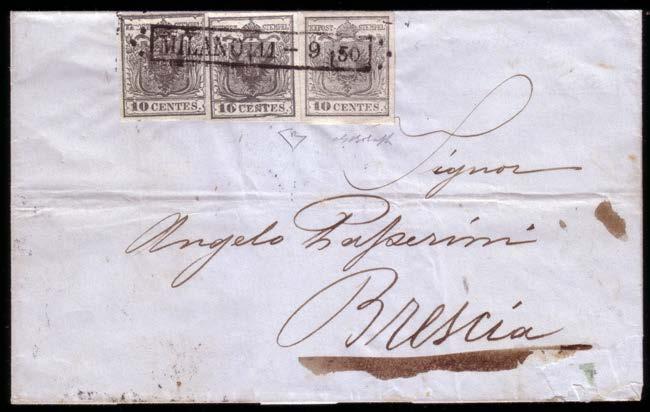 KKPOST-STEMPEL
EXPOST-STEMPEL
MILANO 11-9 50
10 CENTES. 10 CENTES. 10 CENTES.
Signor
Angelo Passerini
Brescia